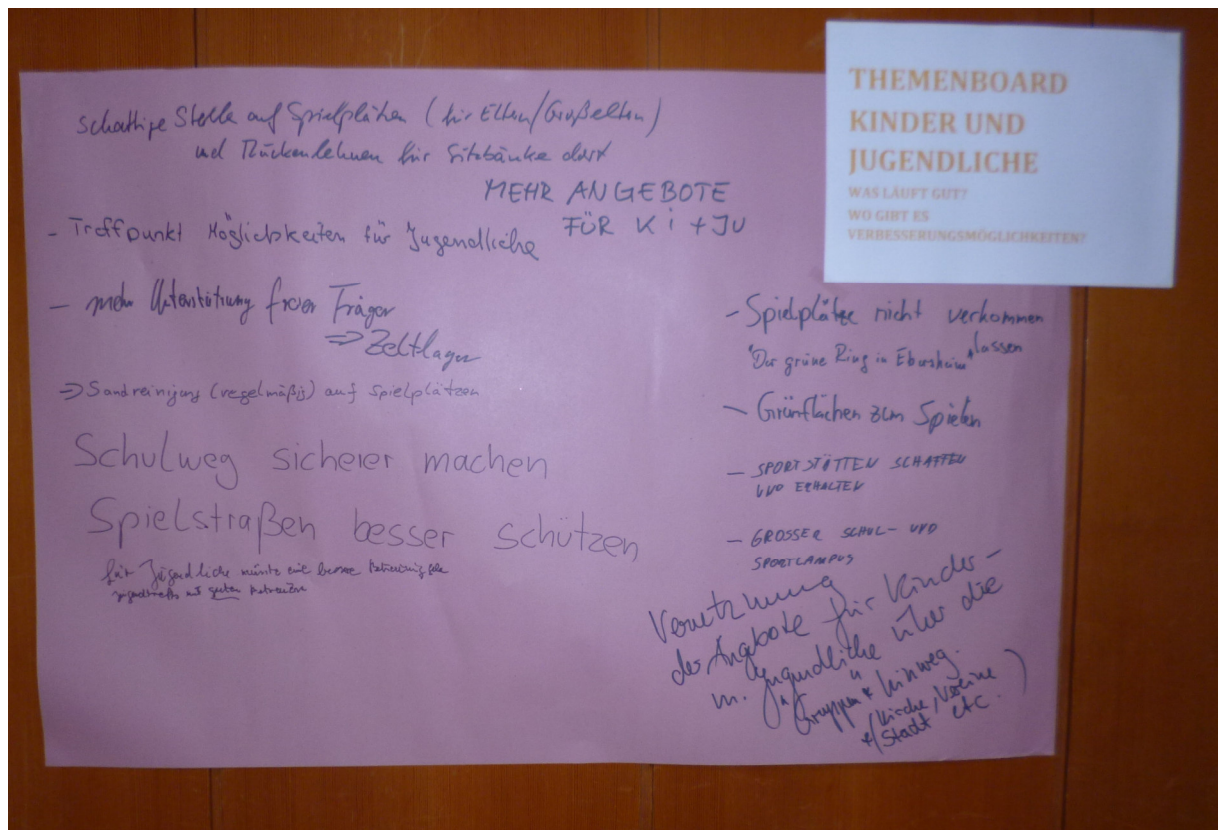 THEMENBOARD
KINDER UND
JUGENDLICHE
WAS LÄUFT GUT?
WO GIBT ES
VERBESSERUNGSMÖGLICHKEITEN?
schattige Stelle auf Spielplätzen (für Eltern/Großeltern)
und Rückenlehnen für Sitzbänke dort
MEHR ANGEBOTE
FÜR Ki + JU
- Treffpunkt Möglichkeiten für Jugendliche
- mehr Unterstützung freier Träger
⇒ Zeltlager
⇒ Sandreinigung (regelmäßig) auf Spielplätzen
Schulweg sicherer machen
Spielstraßen besser schützen
für Jugendliche müsste eine bessere Betreuung
mit guten Betreuern
- Spielplätze nicht verkommen
lassen
"Der grüne Ring in Ebersheim"
- Grünflächen zum Spielen
- SPORTSTÄTTEN SCHAFFEN
UND ERHALTEN
- GROSSER SCHUL- UND
SPORTCAMPUS
Vernetzung
der Angebote für Kinder-
u. Jugendliche über die
"Gruppen"* hinweg.
*(Kirche, Vereine
Stadt etc.)